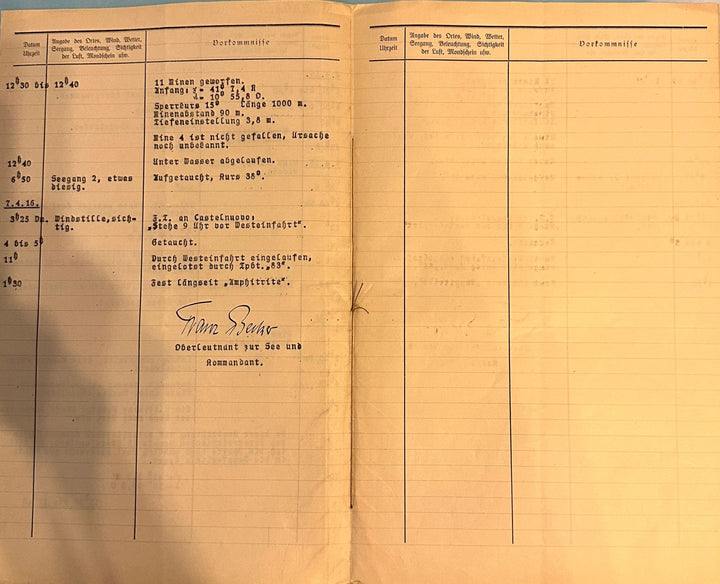 Datum
Uhrzeit
Angabe des Ortes, Wind, Wetter,
Seegang, Beleuchtung, Sichtigkeit
der Luft, Mondschein usw.
Vorkommnisse
12h30 bis 12h40
11 Minen geworfen.
Anfang: φ = 41° 7,4 N
λ = 10° 55,8 O.
Sperrkurs 15° Länge 1000 m.
Minenabstand 90 m.
Tiefeneinstellung 3,8 m.
Mine 4 ist nicht gefallen, Ursache
noch unbekannt.
12h40
Unter Wasser abgelaufen.
6h50
Seegang 2, etwas
diesig.
Aufgetaucht, Kurs 38°.
7.4.16.
3h25 Vm. Windstille, sich-
tig.
F.T. an Castelnuovo:
„Stehe 9 Uhr vor Westeinfahrt".
4 bis 5h
Getaucht.
11h
Durch Westeinfahrt eingelaufen,
eingelotst durch Tpbt. „83".
1h30
Fest längseit „Amphitrite".
Franz Becker
Oberleutnant zur See und
Kommandant.
Datum
Uhrzeit
Angabe des Ortes, Wind, Wetter,
Seegang, Beleuchtung, Sichtigkeit
der Luft, Mondschein usw.
Vorkommnisse